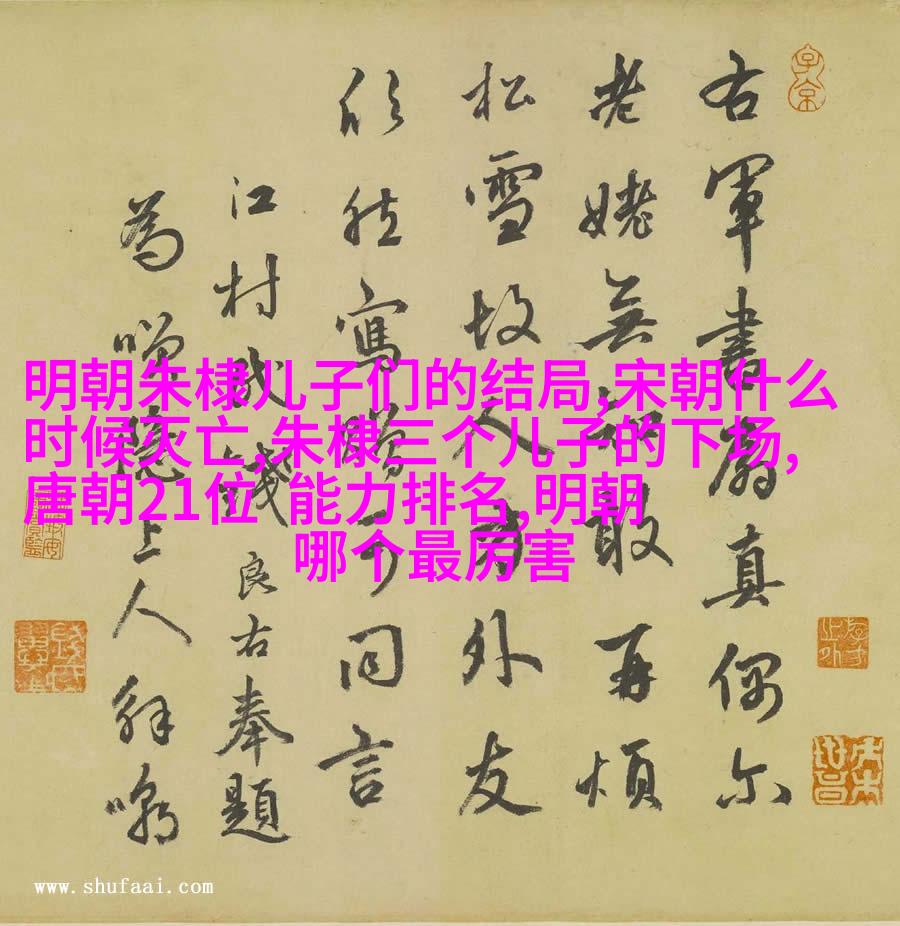 明朝朱棣儿子们的结局,宋朝什么
时候灭亡,朱棣三个儿子的下场,
唐朝21位 能力排名,明朝
哪个最厉害
右軍書扇真偶尔
老姥無知敢再煩
松雪故人方外友
欣然寫贈可同言
江村民錢良右奉題
為隱上人解嘲
子京
www.shufaai.com